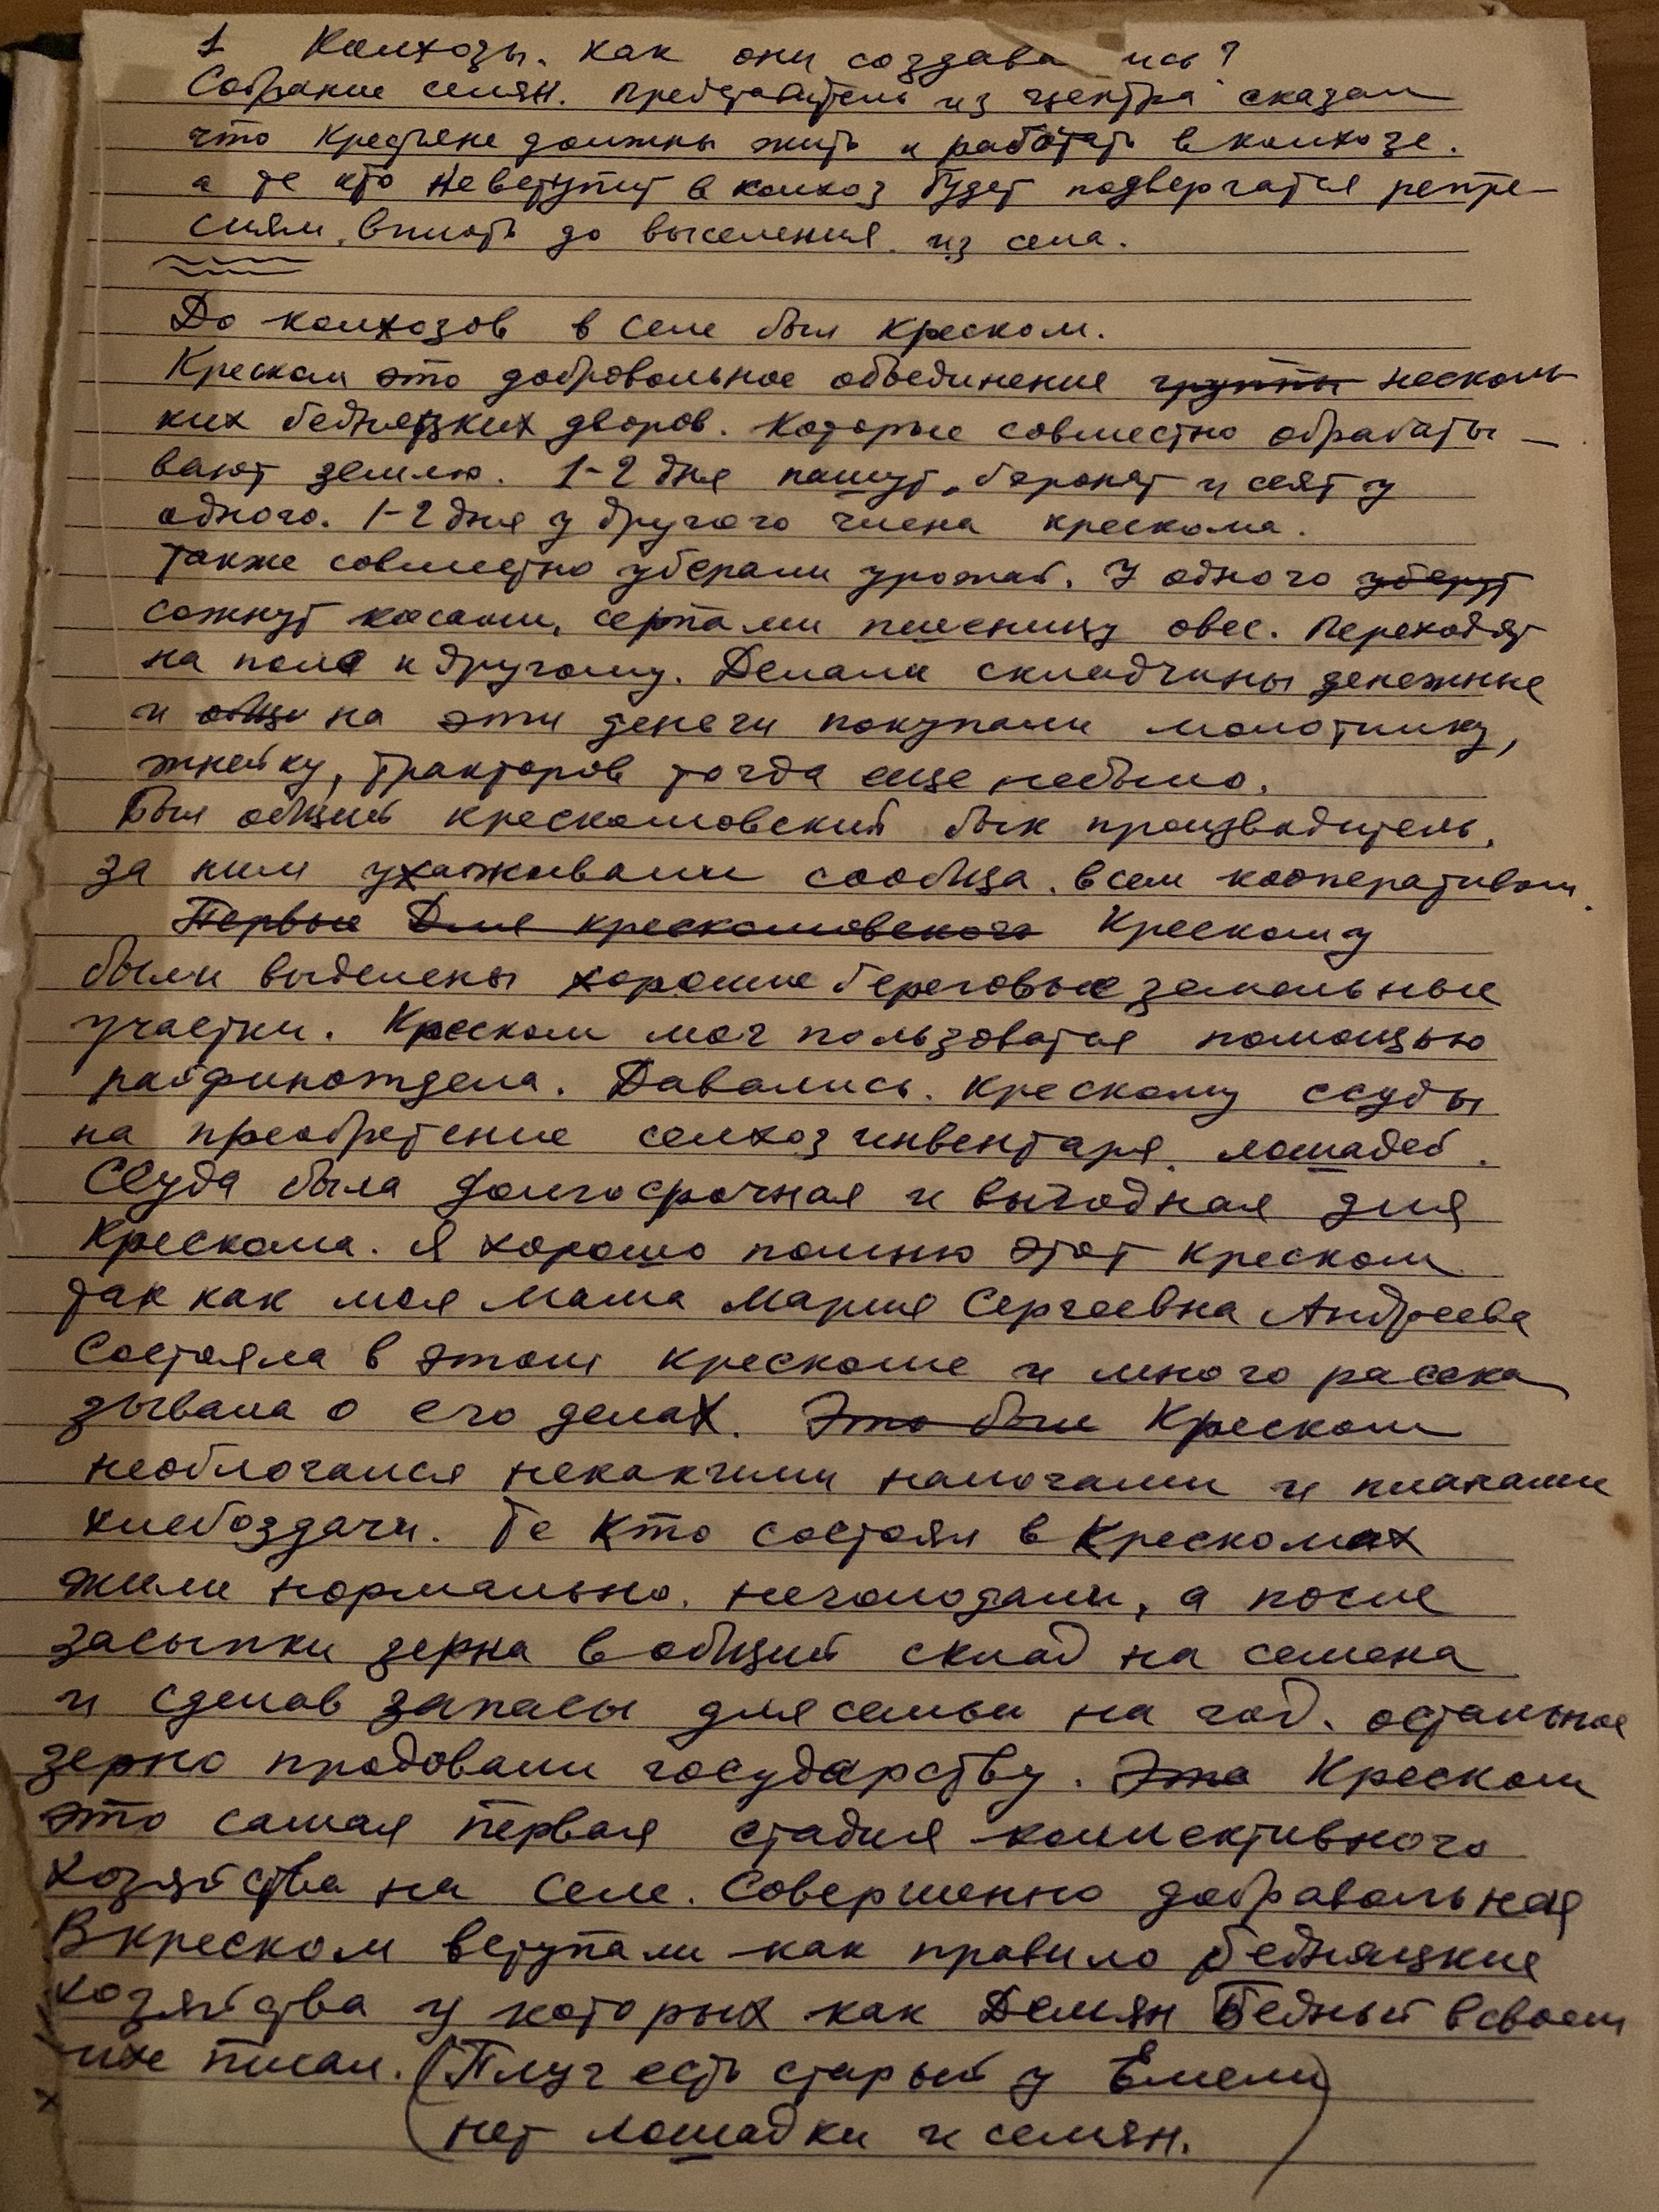 1 Колхозы. как они создава ись?
Собрание селян. Представитель из центра сказал
что Крестьяне должны жить и работать в колхозе.
а те кто невступит в колхоз будет подвергатся репре-
сиям, вплоть до выселения из села.
До колхозов в селе был Креском.
Креском это добровольное объединение группы несколь
ких бедняцких дворов. Которые совместно обрабаты-
вают землю. 1-2 дня пашут, боронят и сеят у
одного. 1-2 дня у другого члена крескома.
Также совместно уберали урожай. У одного уберут
сожнут косами, серпами пшеницу овес. Переходят
на поле к другому. Делали складчины денежные
и общи на эти деньги покупали молотилку,
жнейку, тракторов тогда еще небыло.
Был общий крескомовский бык производитель,
за ним ухаживали сообща. всем кооперативом.
Первые Для крескомовского Крескому
были выделены хорошие береговые земельные
участки. Креском мог пользоватся помощью
райфинотдела. Давались. Крескому ссуды
на преобретение селхоз инвентаря, лошадей.
Ссуда была долгосрочная и выгодная для
Крескома. Я хорошо помню этот креском
так как моя мама Мария Сергеевна Андреева
Состояла в этом крескоме и много расска
зывала о его делах. Это был Креском
необлогался некакими налогами и планами
хлебоздачи. Те Кто состоял в Крескомах
жили нормально. неголодали, а после
засыпки зерна в общий склад на семена
и сделав запасы для семьи на год. остальное
зерно продовали государству. Это Креском
это самая первая стадия коллективного
хозяйства на селе. Совершенно добравольная
В креском вступали как правило бедняцкие
хозяйства у которых как Демян Бедный в своем
писал. (Плуг есть старый у Емели
нет лошадки и семян.)